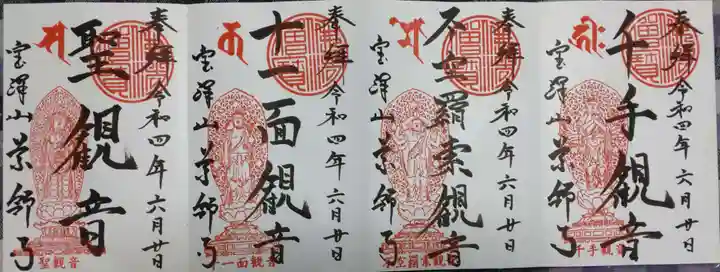 奉拝 令和四年六月廿日
千手観音
宝澤山薬師寺
千手観音
奉拝 令和四年六月廿日
不空羂索観音
宝澤山薬師寺
不空羂索観音
奉拝 令和四年六月廿日
十一面観音
宝澤山薬師寺
十一面観音
奉拝 令和四年六月廿日
聖観音
宝澤山薬師寺
聖観音